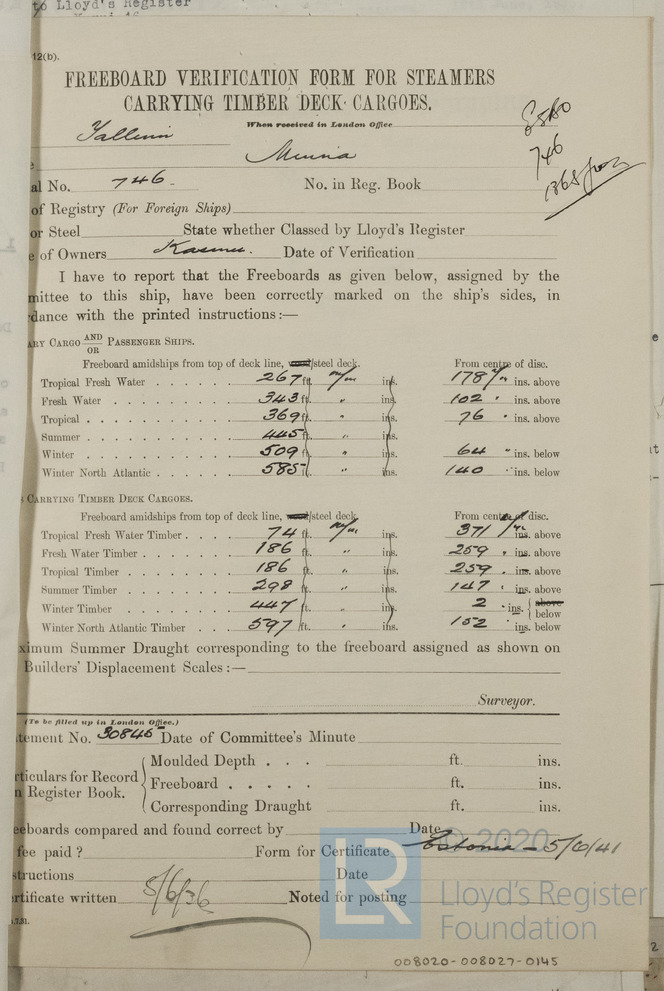 to Lloyd's Register
12(b).
FREEBOARD VERIFICATION FORM FOR STEAMERS
CARRYING TIMBER DECK CARGOES.
When received in London Office
Tallinn
Minna
al No. 746. No. in Reg. Book
of Registry (For Foreign Ships)
or Steel State whether Classed by Lloyd's Register
e of Owners Kasmu. Date of Verification
746
I have to report that the Freeboards as given below, assigned by the
mittee to this ship, have been correctly marked on the ship's sides, in
dance with the printed instructions:—
ARY CARGO AND OR PASSENGER SHIPS.
Freeboard amidships from top of deck line, wood/steel deck. From centre of disc.
Tropical Fresh Water 267 ft. m/m ins. 178 m/m ins. above
Fresh Water 343 ft. " ins. 102 " ins. above
Tropical 369 ft. " ins. 76 " ins. above
Summer 445 ft. " ins.
Winter 509 ft. " ins. 64 " ins. below
Winter North Atlantic 585 ft. " ins. 140 " ins. below
CARRYING TIMBER DECK CARGOES.
Freeboard amidships from top of deck line, wood/steel deck. From centre of disc.
Tropical Fresh Water Timber 74 ft. m/m ins. 371 m/m ins. above
Fresh Water Timber 186 ft. " ins. 259 " ins. above
Tropical Timber 186 ft. " ins. 259 " ins. above
Summer Timber 298 ft. " ins. 147 " ins. above
Winter Timber 447 ft. " ins. 2 " ins. above below
Winter North Atlantic Timber 597 ft. " ins. 152 " ins. below
ximum Summer Draught corresponding to the freeboard assigned as shown on
Builders' Displacement Scales:—
Surveyor.
(To be filled up in London Office.)
tement No. 30845 Date of Committee's Minute
rticulars for Record
n Register Book.
Moulded Depth ft. ins.
Freeboard ft. ins.
Corresponding Draught ft. ins.
eeboards compared and found correct by Date
fee paid? Form for Certificate Estonia – 5/6/41
structions Date
rtificate written 5/6/36 Noted for posting
© 2020
LR
Lloyd's Register
Foundation
008020-008027-0145